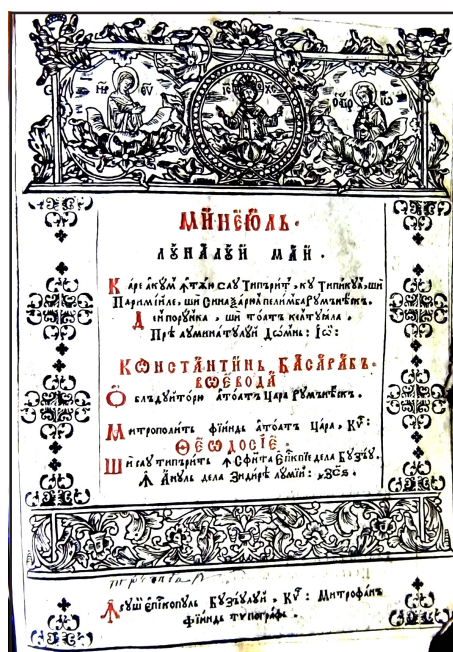 МР ѲУ
ІС ХС
МИНЕЮЛЬ.
ЛȢНАЛȢЙ МАЙ.
Каре акȢм ꙟтѫю саȢ Типѣрит, кȢ ТипикȢл, ши
Паримїиле, ши СинаѯарꙋлпелимбаРȢмѫнѣскъ.
Дин порȢнка, ши тоатъ келтȢиала.
Прѣ лȢминатȢлȢй Дѡмнь: Іѡ:
КѠНСТАНТИНЬ БАСАРАБЬ.
ВѠЕВОДА
ѠблъдȢиторю атоатъ Цара РȢмѫнѣскъ.
Митрополить фїиндь атоатъ Цара, Кѵ҃:
ѲЕѠДОСІЕ.
Ши саȢ типърить ꙟ Сфѫнта Епкпїе дела БȢзъȢ.
ꙟ АнȢль дела Зидирѣ лȢмїй: ҂ЗСЅ
ꙞпископȢль БȢзъȢлȢй, Кѵ҃: Митрофанъ
фїиндь типографь.